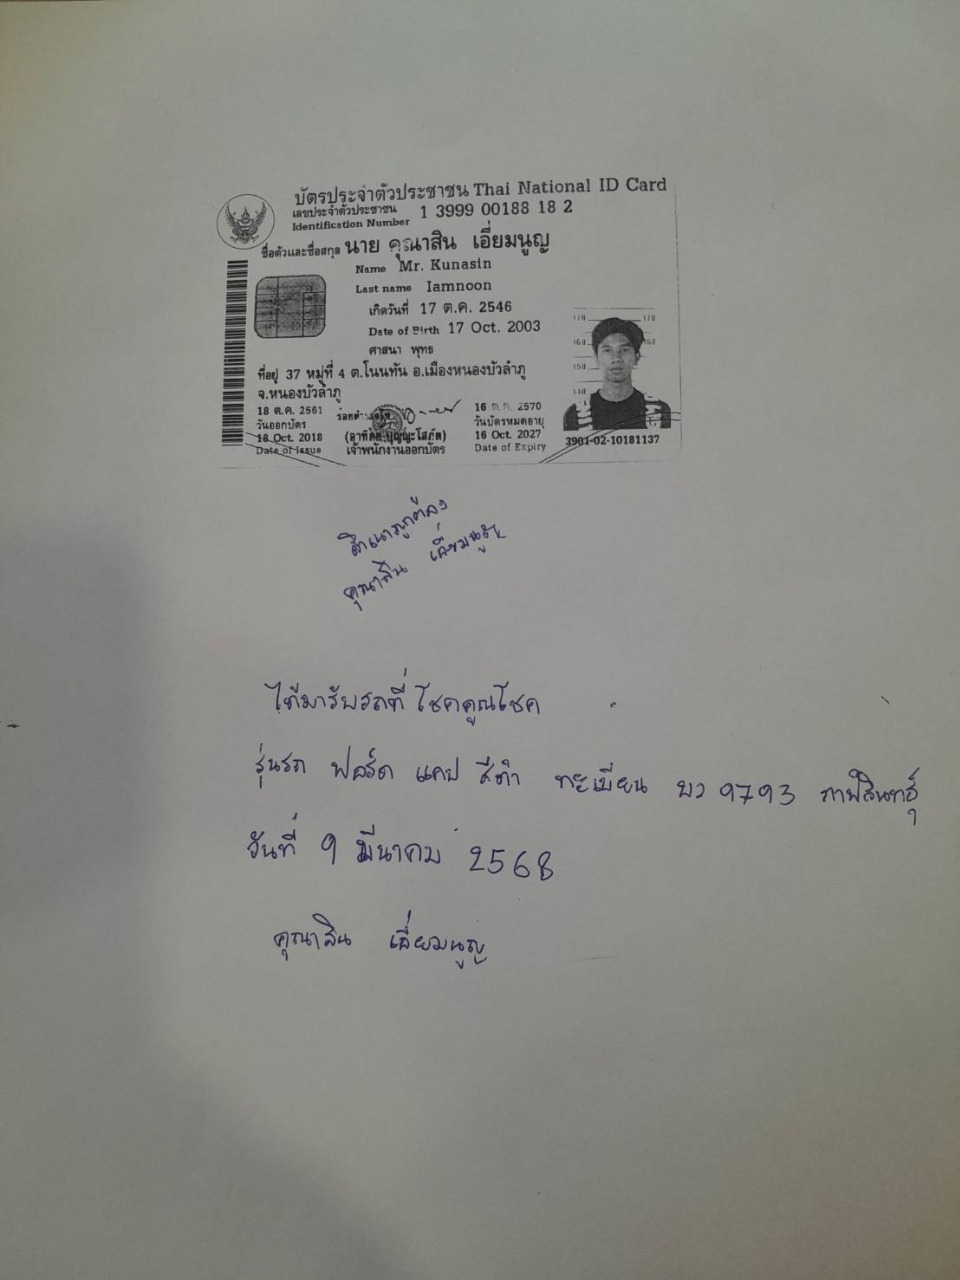 บัตรประจำตัวประชาชน Thai National ID Card
เลขประจำตัวประชาชน
Identification Number
1 3999 00188 18 2
ชื่อตัวและชื่อสกุล นาย คุณาสิน เอี่ยมนูญ
Name Mr. Kunasin
Last name Iamnoon
เกิดวันที่ 17 ต.ค. 2546
Date of Birth 17 Oct. 2003
ศาสนา พุทธ
ที่อยู่ 37 หมู่ที่ 4 ต.โนนทัน อ.เมืองหนองบัวลำภู
จ.หนองบัวลำภู
18 ต.ค. 2561
วันออกบัตร
18 Oct. 2018
Date of Issue
เจ้าพนักงานออกบัตร
16 ต.ค. 2570
วันบัตรหมดอายุ
16 Oct. 2027
Date of Expiry
3901-02-10181137
สำเนาถูกต้อง
คุณาสิน เอี่ยมนูญ
ได้มารับรถที่ โชคคูณโชค
รุ่นรถ ฟอร์ด แคป สีดำ ทะเบียน บว 9793 กาฬสินทธุ์
วันที่ 9 มีนาคม 2568
คุณาสิน เอี่ยมนูญ